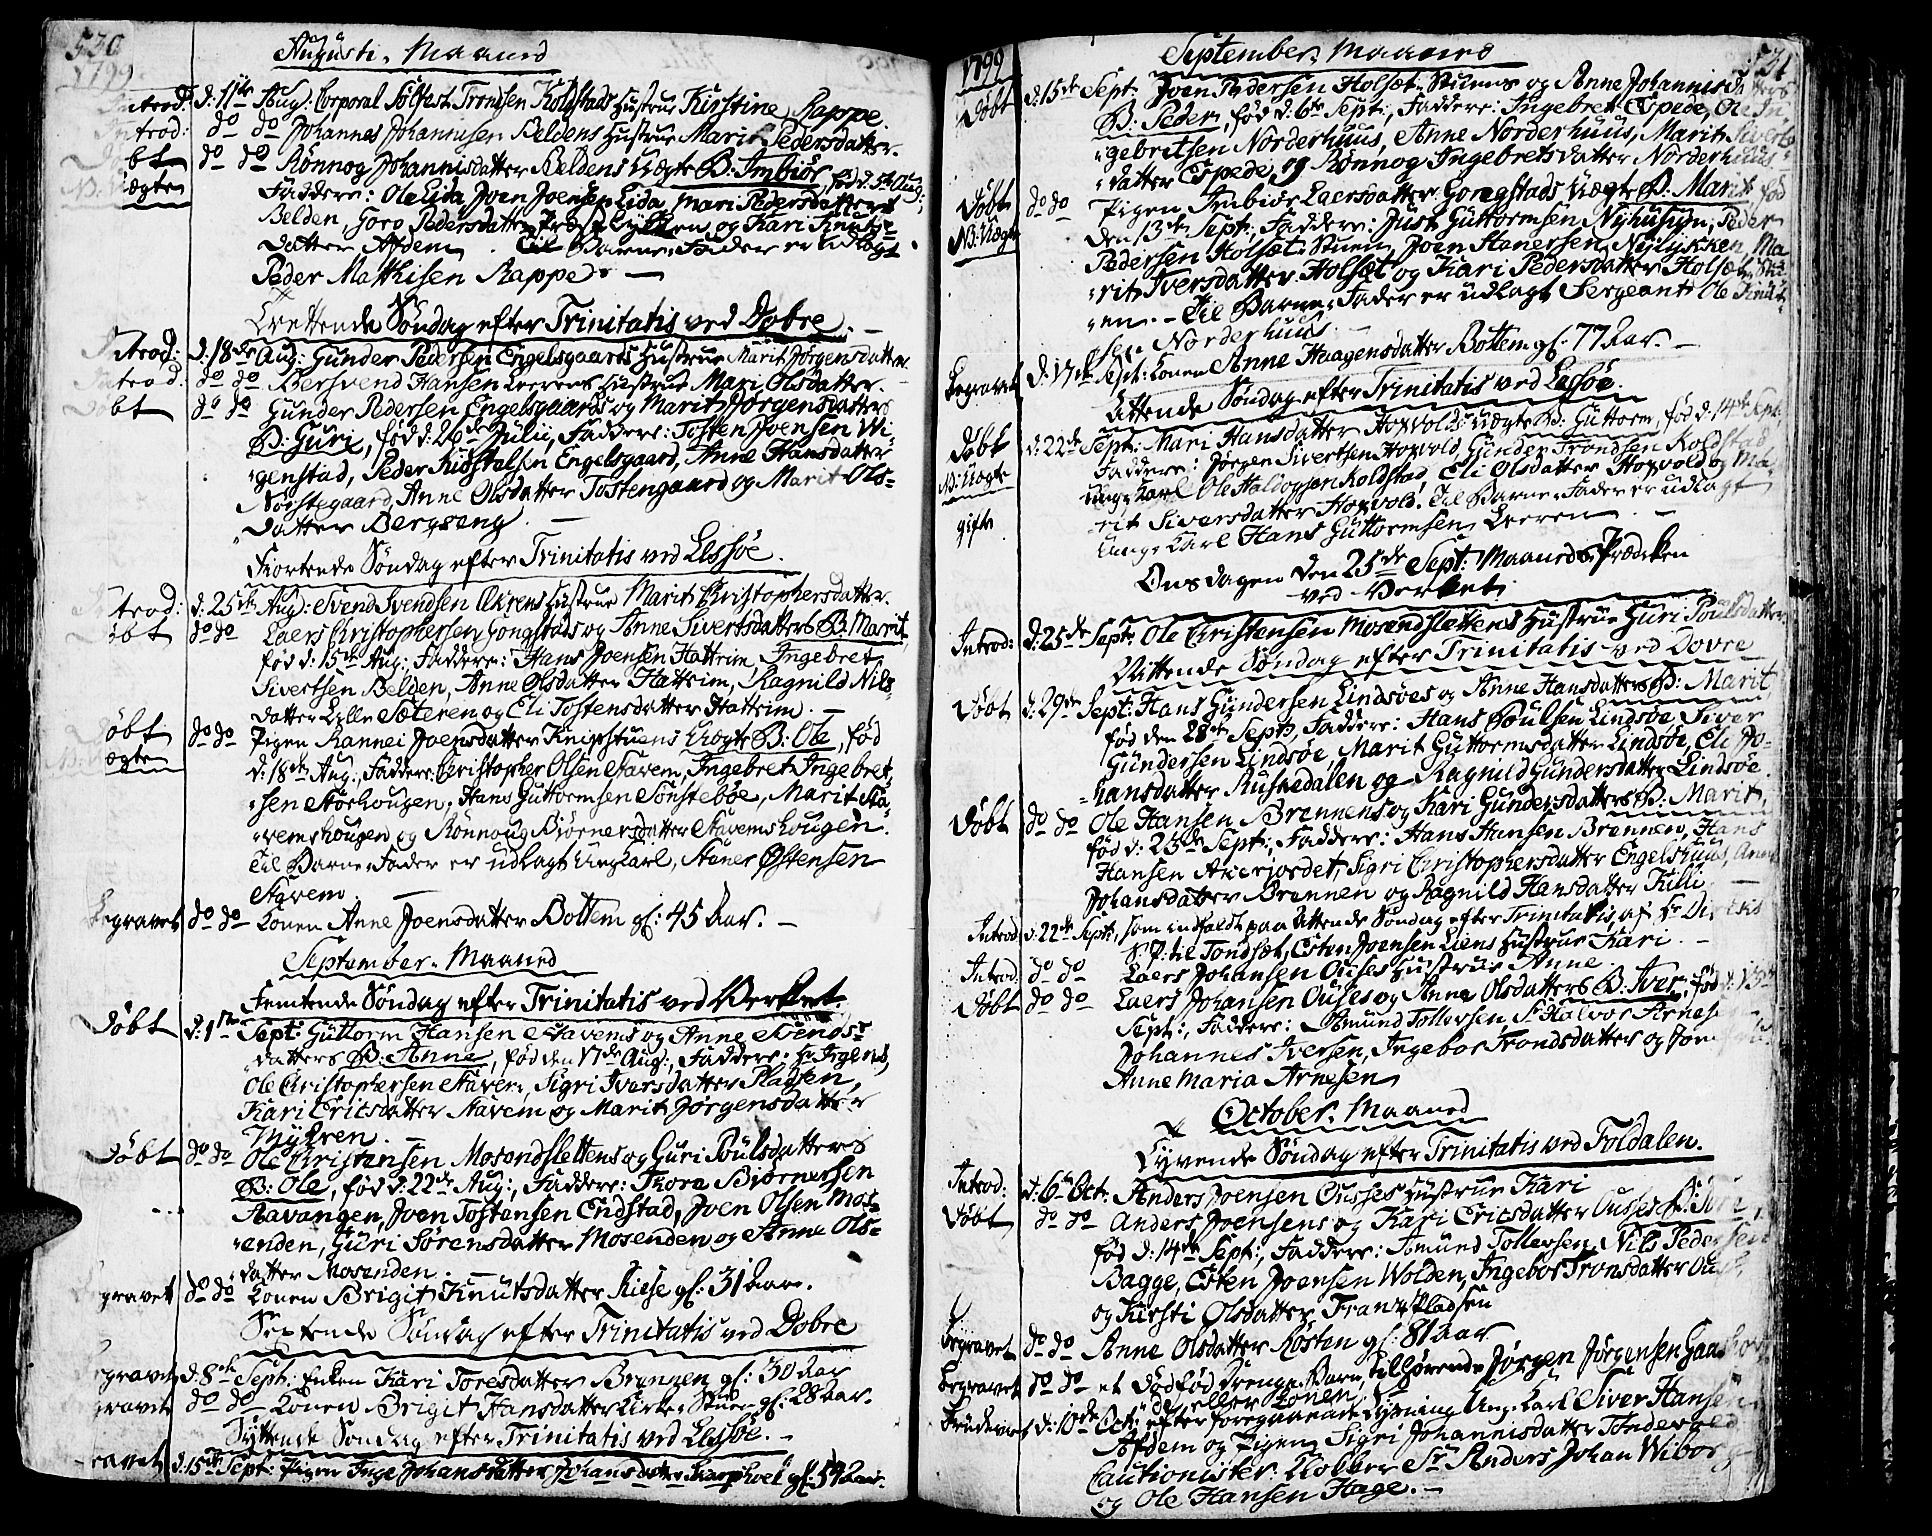 520
1799
Augusti Maaned
Introd: d: 11te Aug: Corporal Solfast Trondsen Koldstads Hustrue Kirstine Rappe.
Introd: do do Johannes Johannesen Beldens Hustrue Marit Pedersdatter.
Døbt do do Rønnog Johannisdatter Beldens Uægte B: Imbiør, fød d: 5te Aug:,
N: Uægte Faddere: Ole Lida, Joen Joensen Lida, Mari Pedersdatter
Belden, Goro Pedersdatter og Kari Knuts-
datter Afdem. Til Barne-Fader er udlagt
Peder Mathisen Rappe. —
Trettende Søndag efter Trinitatis ved Dovre. —
Introd: d: 18de Aug: Gunder Pedersen Engelsgaards Hustrue Marit Jørgensdatter.
Introd: do do Bersvend Hansen Leerens Hustrue Mari Olsdatter.
Døbt do do Gunder Pedersen Engelsgaards og Marit Jørgensdatters
B: Guri, fød d: 26de Julii, Faddere: Tosten Joensen Wi-
genstad, Peder Engelsgaard, Anne Hansdatter
Norstegaard, Anne Olsdatter Tostengaard og Marit Ols-
datter Bergseng. —
Fiortende Søndag efter Trinitatis ved Lessøe.
Introd: d: 25de Aug: Svend Svendsen Ekrens Hustrue Marit Christophersdatter.
Døbt do do Laers Christophersen Gongstads og Anne Sivertsdatters B: Marit,
fød d: 15de Aug: Faddere: Hans Joensen Hattrim, Ingebret
Sivertsen Belden, Anne Olsdatter Hattrim, Ragnild Nils-
datter Lille Sæteren og Eli Tostensdatter Hattrim. —
Døbt do do Pigen Rannei Joensdatter Knipstuens Uægte B: Ole, fød
N: Uægte d: 18de Aug:, Faddere: Christopher Olsen Stavem, Ingebret Ingebret-
sen Storhougen, Hans Guttormsen Sønstebøe, Marit Sta-
vemshougen og Rønnoug Biørnersdatter Stavemshougen.
Til Barne-Fader er udlagt Ung Karl, Staner Østensen
Stavem. —
Begravet do do Konen Anne Joensdatter Bottem gl: 45 Aar. —
September-Maaned
Femtende Søndag efter Trinitatis ved Verket.
Døbt d: 1ste Sept: Guttorm Hansen Stavems og Anne Svends-
datters B: Anne, fød den 17de Aug:, Faddere: Hr Irgens,
Ole Christophersen Stavem, Sigri Iversdatter Pladsen,
Kari Ericsdatter Stavem og Marit Jørgensdatter
Myhren. —
Døbt do do Ole Christensen Mosendslettens og Guri Poulsdatters
B: Ole, fød d: 22de Aug:, Faddere: Thore Biørnersen
Aavangen, Joen Tostensen Endstad, Joen Olsen Mos-
enden, Guri Sørensdatter Mosenden og Anne Ols-
datter Mosenden. —
Begravet do do Konen Brigit Knutsdatter Riise gl: 31 Aar.
Sextende Søndag efter Trinitatis ved Dovre
Begravet d: 8de Sept: Enken Kari Toresdatter Brennen gl: 30 Aar
Begravet do do Konen Brigit Hansdatter Kirke-Stuen gl: 28 Aar.
Syttende Søndag efter Trinitatis ved Lessøe. —
Begravet d: 15de Sept: Pigen Inge Johansdatter Skarphoel gl: 59 Aar.
1799 September-Maaned 521
Døbt d: 15de Sept: Joen Pedersen Holset-Stuens og Anne Johannisdatters
B: Peder, fød d: 6te Sept:, Faddere: Ingebret Espede, Ole In-
gebretsen Norderhuus, Anne Norderhuus, Marit Siverts-
datter Espede og Rønnog Ingebretsdatter Norderhuus.
Døbt do do Pigen Imbiør Laersdatter Gongstads Uægte B: Marit, fød
N: Uægte den 13de Sept:, Faddere: Just Guttormsen Nyhusyn, Peder
Pedersen Holset-Stuen, Joen Stanersen Nylykken, Ma-
rit Iversdatter Holset og Kari Pedersdatter Holset-Stu-
en. — Til Barne-Fader er udlagt Sergeant Ole Knut-
sen Norderhuus.
Begravet d: 17de Sept: Konen Anne Haagensdatter Bottem gl: 77 Aar. —
Attende Søndag efter Trinitatis ved Lessøe.
Døbt d: 22de Sept: Mari Hansdatter Hoxvolds Uægte B: Guttorm, fød d: 14de Sept:
N: Uægte Faddere: Jørgen Sivertsen Hoxvold, Gunder Trondsen Koldstad,
Unge Karl Ole Halvorsen Koldstad, Eli Olsdatter Hoxvold og Ma-
gifte rit Siversdatter Hoxvold. Til Barne-Fader er udlagt
Unge Karl Hans Guttormsen Leeren —
Onsdagen den 25de Sept: Maaneds-Prædiken
ved Verket.
Introd: d: 25de Sept: Ole Christensen Mosendslettens Hustrue Guri Poulsdatter
Nittende Søndag efter Trinitatis ved Dovre
Døbt d: 29de Sept: Hans Gundersen Lindsøes og Anne Hansdatters B: Marit
fød den 28de Sept:, Faddere: Hans Poulsen Lindsøe, Siver
Gundersen Lindsøe, Marit Guttormsdatter Lindsøe, Eli Jo-
hansdatter Ruskedalen og Ragnild Gundersdatter Lindsøe
Døbt do do Ole Hansen Brennens og Kari Gundersdatters B: Marit,
fød d: 25de Sept:, Faddere: Hans Hansen Brennen, Hans
Hansen Akerjordet, Sigri Christophersdatter Engelshuus, Anne
Johansdatter Brennen og Ragnild Hansdatter Killi. —
Introd: d: 22de Sept:, som indfaldt paa Attende Søndag efter Trinitatis, af
S: P: til Tondset, Esten Joensen Liens Hustrue Kari. —
Introd. do do Laers Johansen Ouses Hustrue Anne.
Døbt do do Laers Johansen Ouses og Anne Olsdatters B: Iver, fød d: 13de
Sept:, Faddere: Amund Tollevsen, Sr Halvor Arnesen
Johannes Iversen, Ingebor Trondsdatter og Jomfrue
Anne Maria Arnesen
October-Maaned
Tyvende Søndag efter Trinitatis ved Foldalen.
Introd: d: 6te Oct: Anders Joensen Ousses Hustrue Kari
Døbt do do Anders Joensens og Kari Ericsdatter Ouses B:
fød d: 14de Sept:, Faddere: Amund Tollevsen, Nils Pedersen
Bagge, Esten Joensen Wolden, Ingebor Tronsdatter Ous
og Kirsti Olsdatter Frankpladsen
Begravet do do Anne Olsdatter Kosten gl: 81 Aar
Begravet do do et dødfød Drenge-Barn, tilhørende Jørgen Jørgensen
eller Konen
Troloved d: 10de Oct: efter foregaaende Lysning Unge Karl Siver Hansen
Afdem og Pigen Sigri Johannisdatter Tondevold
Cautionister: Klokker Sr Anders Johan Wiborg
og Ole Hansen Hage. —